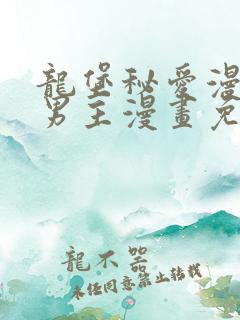 龍堡秘愛漫
男主漫畫免
龍不器
未任同意禁止轉載